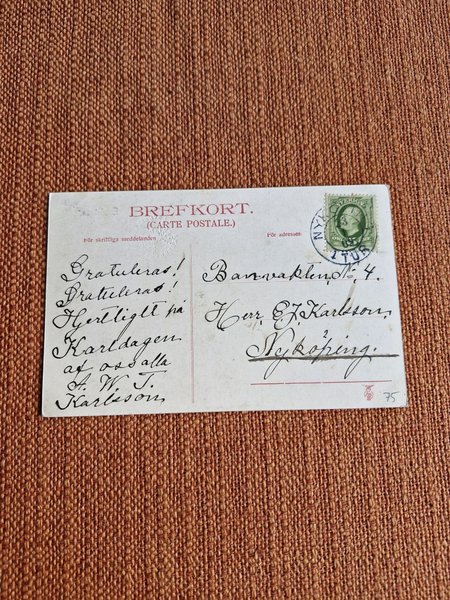 BREFKORT.
(CARTE POSTALE.)
För skriftliga meddelanden.
För adressen.
Gratuleras!
Gratuleras!
Hjertligt på
Karldagen
af oss alla
A. W. T.
Karlsson
Banvakten, No 4.
Herr E. J. Karlsson,
Nyköping.
NYK
1 TUR
75